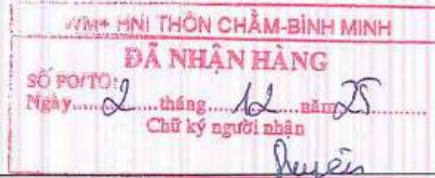 WM+ HNI THÔN CHẰM-BÌNH MINH
ĐÃ NHẬN HÀNG
SỐ PO/TO:
Ngày.....2.....tháng.....12.....năm25.....
Chữ ký người nhận